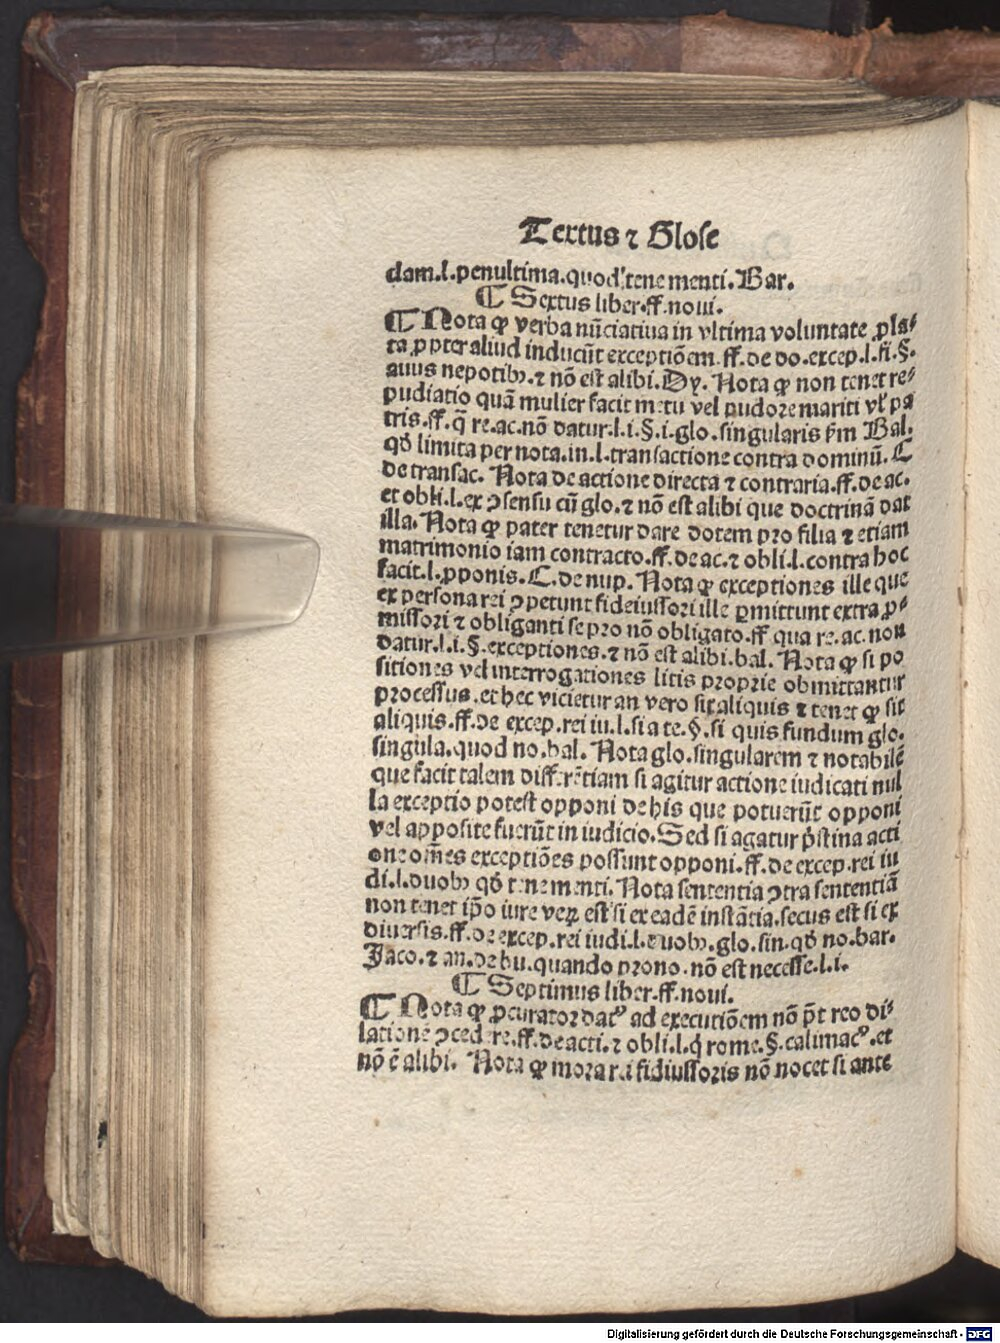 Textus ⁊ Glose
dam.l.penultima.quod tene menti. Bar.
¶ Sextus liber.ff.noui.
¶ Nota ꝙ verba nūciatiua in vltima voluntate ꝓla⸗
ta ꝓpter aliud inducūt exceptiōem.ff.de do.excep.l.fi.§.
auus nepotibꝫ.⁊ nō est alibi.Dy. Nota ꝙ non tenet re⸗
pudiatio quā mulier facit metu vel pudore mariti vł pa
tris.ff.q̄ re.ac.nō datur.l.i.§.i.glo.singularis fm Bal.
qð limita per nota.in.l.transactione contra dominū.C
de transac. Nota de actione directa ⁊ contraria.ff.de ac.
et obli.l.ex ꝯsensu cū glo.⁊ nō est alibi que doctrinā dat
illa. Nota ꝙ pater tenetur dare dotem pro filia ⁊ etiam
matrimonio iam contracto.ff.de ac.⁊ obli.l. contra hoc
facit.l.ꝓponis.C.de nup. Nota ꝙ exceptiones ille que
ex persona rei ꝯpetunt fideiussori ille ꝑmittunt extra ꝓ⸗
missori ⁊ obliganti se pro nō obligato.ff qua re.ac.non
datur.l.i.§.exceptiones.⁊ nō est alibi.bal. Nota ꝙ si po
sitiones vel interrogationes litis proprie obmittantur
processus.et hec vicietur an vero sit aliquis ⁊ tenet ꝙ sit
aliquis.ff.de excep.rei iu.l.si a te.§.si quis fundum glo.
singula.quod no.bal. Nota glo.singularem ⁊ notabilē
que facit talem differētiam si agitur actione iudicati nul
la exceptio potest opponi de his que potuerūt opponi
vel apposite fuerūt in iudicio. Sed si agatur p̄stina acti
one om̄es exceptiōes possunt opponi.ff.de excep.rei iu
di.l.duobꝫ qð tene menti. Nota sententia ꝯtra sententiā
non tenet ip̄o iure verꝫ est si ex eadē instātia.secus est si ex
diuersis.ff.de excep.rei iudi.l.duobꝫ.glo.sin.qð no.bar.
Jaco.⁊ an.de bu.quando prono.nō est necesse.l.i.
¶ Septimus liber.ff.noui.
¶ Nota ꝙ ꝓcurator datꝰ ad executiōem nō p̄t reo di⸗
lationē ꝯcedere.ff.de acti.⁊ obli.l.q̇ rome.§.calimacꝰ.et
nō ē alibi. Nota ꝙ mora rei fidiussoris nō nocet si ante
Digitalisierung gefördert durch die Deutsche Forschungsgemeinschaft - DFG